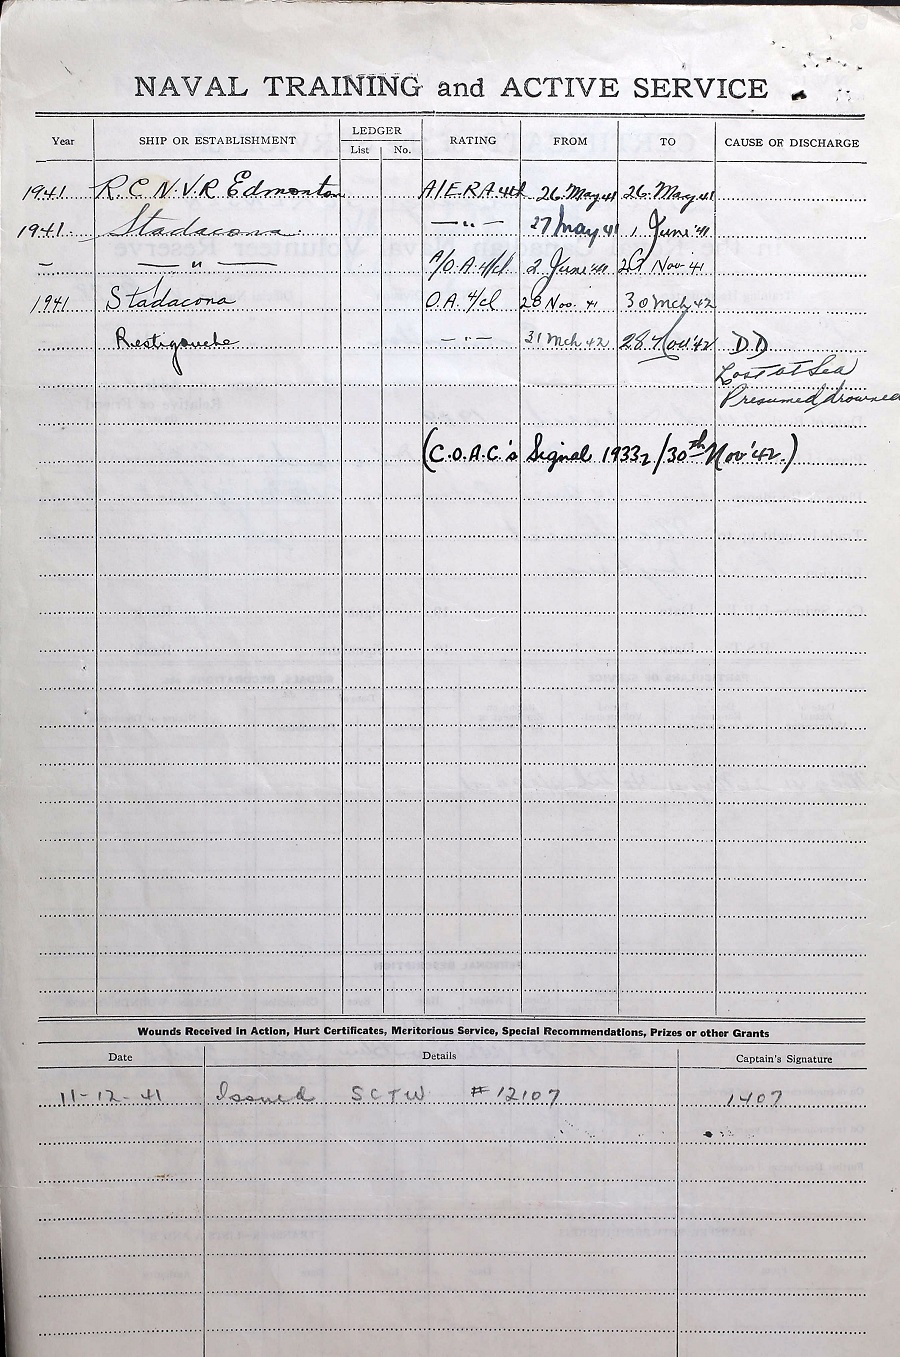 NAVAL TRAINING and ACTIVE SERVICE
Year SHIP OR ESTABLISHMENT LEDGER List No. RATING FROM TO CAUSE OF DISCHARGE
1941 R.C.N.V.R Edmonton A/E.R.A 4th 26 May 41 26 May 41
1941 Stadacona —"— 27 May 41 1 June '41
— — " — A/O.A. 4/cl 2 June '41 27 Nov '41
1941 Stadacona O.A. 4/cl 28 Nov. 41 30 Mch 42
Restigouche — " — 31 Mch 42 28 Nov '42 DD
Lost at Sea
Presumed drowned
(C.O.A.C's Signal 1933z/30th Nov '42.)
Wounds Received in Action, Hurt Certificates, Meritorious Service, Special Recommendations, Prizes or other Grants
Date Details Captain's Signature
11-12-41 Issued SCTW #12107 1407